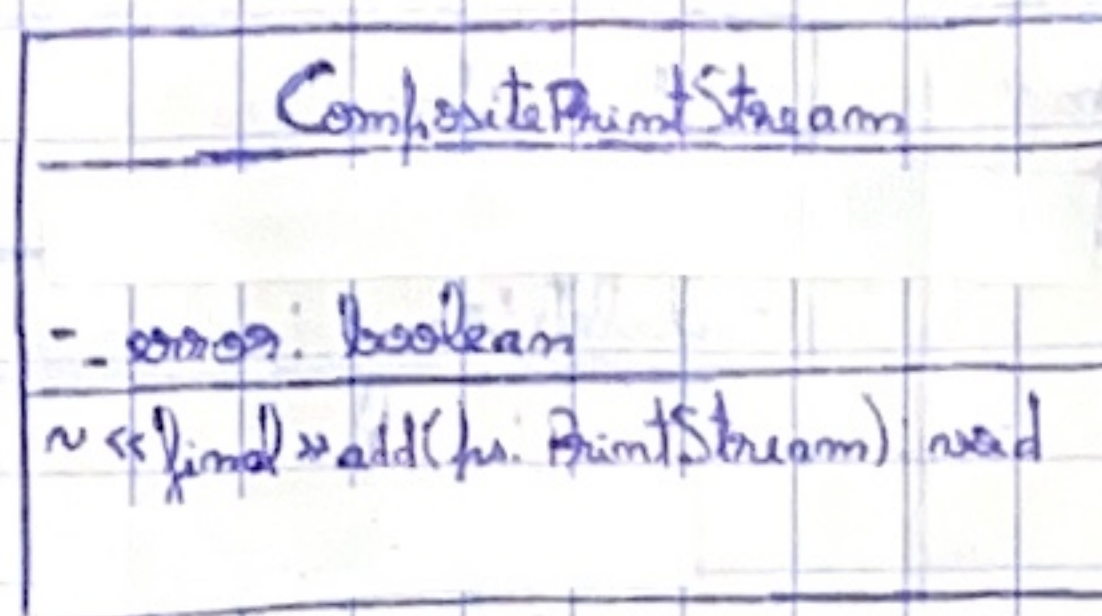 CompositePrintStream
- _error: boolean
~ «final» add(ps: PrintStream): void